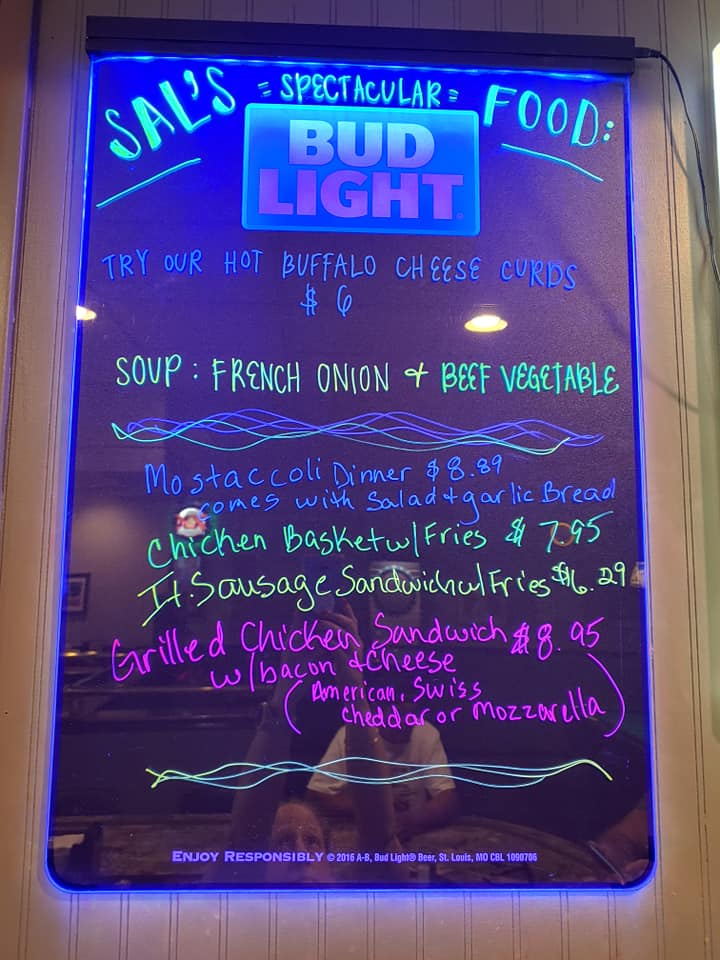 SAL'S = SPECTACULAR = FOOD:
BUD
LIGHT
TRY OUR HOT BUFFALO CHEESE CURDS
$ 6
SOUP: FRENCH ONION + BEEF VEGETABLE
Mostaccoli Dinner $8.89
comes with Salad + garlic Bread
Chicken Basket w/ Fries $ 7.95
It. Sausage Sandwich w/ Fries $6.29
Grilled Chicken Sandwich $8.95
w/ bacon + cheese
(American, Swiss
cheddar or Mozzarella)
ENJOY RESPONSIBLY © 2016 A-B, Bud Light® Beer, St. Louis, MO CBL 1090706